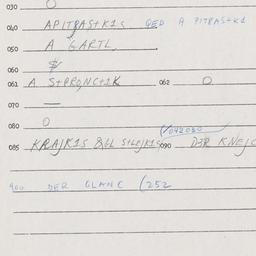 030 O
040 APITRASTK1S QED A PITRASTK1
050 A GARTL
060 $
061 A S+PRONC+1K 062 O
070 —
080 O (/042080
085 KRAJK1S S+LEJK1S 090 D3R KNEJC
900 DER GLANC (252